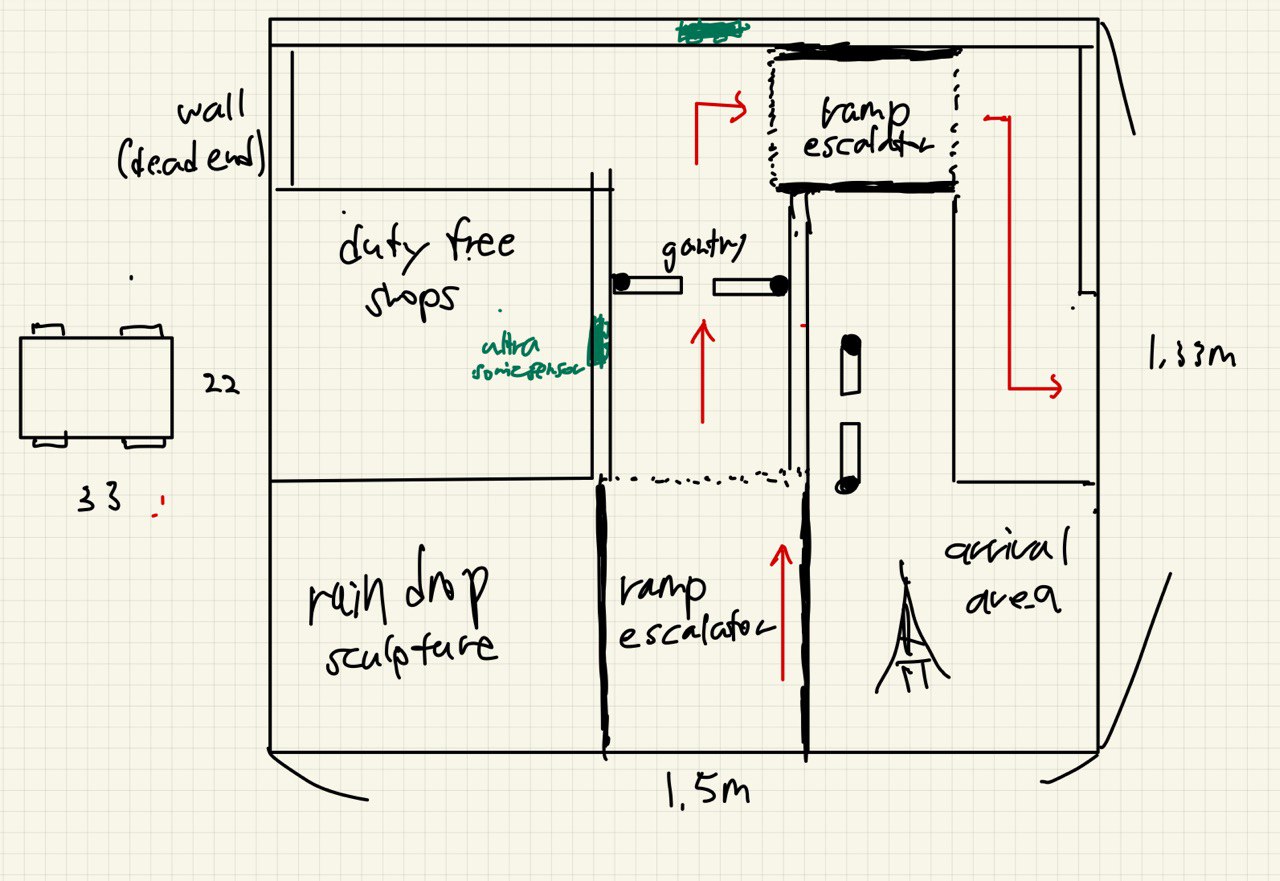 wall
(dead end)
ramp
escalator
duty free
shops
gantry
ultra
sonic sensor
22
33
1.33m
rain drop
sculpture
ramp
escalator
arrival
area
1.5m